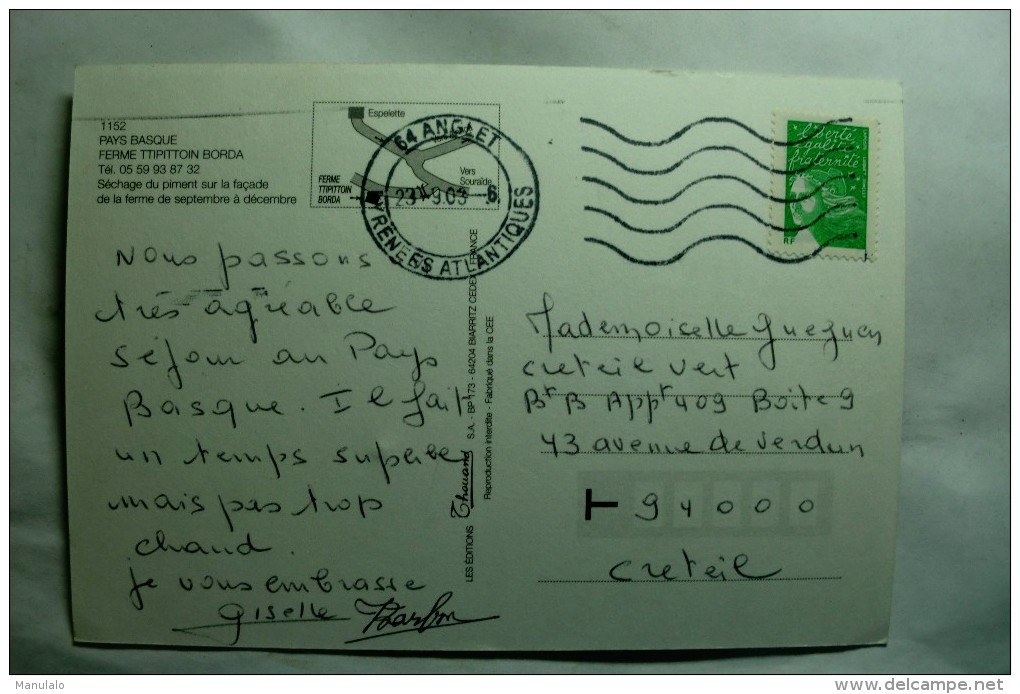 1152
PAYS BASQUE
FERME TTIPITTOIN BORDA
Tél. 05 59 93 87 32
Séchage du piment sur la façade
de la ferme de septembre à décembre
Espelette
Vers
Souraïde
FERME
TTIPITTOIN
BORDA
64 ANGLET
23 9.03
PYRENEES ATLANTIQUES
liberté
égalité
fraternité
RF
Nous passons
très agréable
séjour au Pays
Basque. Il fait
un temps superbe
mais pas trop
chaud.
je vous embrasse
Giselle
LES ÉDITIONS Thouand S.A. - BP 173 - 64204 BIARRITZ CEDEX FRANCE
Reproduction interdite - Fabriqué dans la CEE
Mademoiselle Gueguen
Creteil vert
Bt B Appt 409 Boite 9
43 avenue de verdun
T 94000
Creteil
Manulalo
delcampe.net